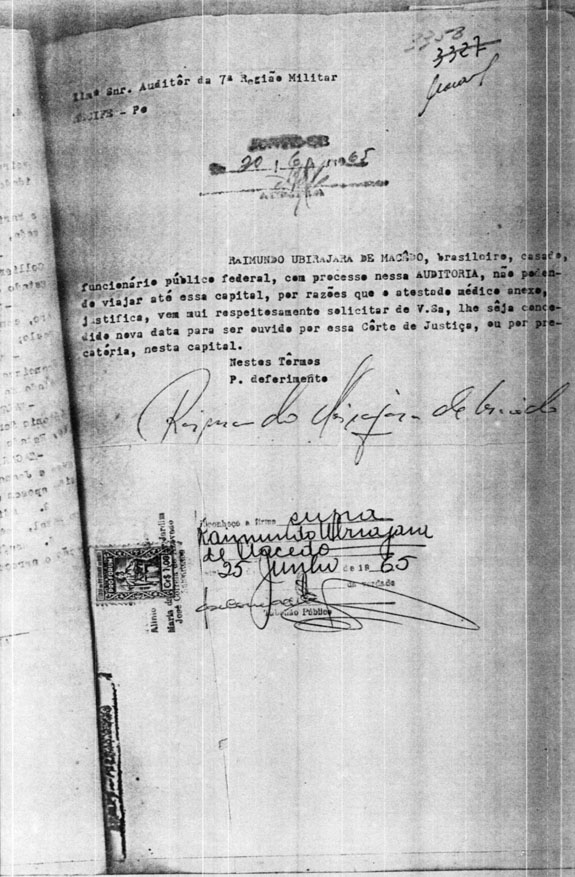 3358
3327
Ilmº Snr. Auditôr da 7ª Região Militar
RECIFE - Pe
20 6 1965
AUDITOR
RAIMUNDO UBIRAJARA DE MACÊDO, brasileiro, casado,
funcionário público federal, com processo nessa AUDITORIA, não poden-
do viajar até essa capital, por razões que o atestado médico anexo,
justifica, vem mui respeitosamente solicitar de V.Sa, lhe sêja conce-
dido nova data para ser ouvido por essa Côrte de Justiça, ou por pre-
catória, nesta capital.
Nestes Têrmos
P. deferimento
Raimundo Ubirajara de Macêdo
Reconheço a firma supra
Raymundo Ubirajara
de Macedo
25 Junho de 19 65
da verdade
Tabelião Público